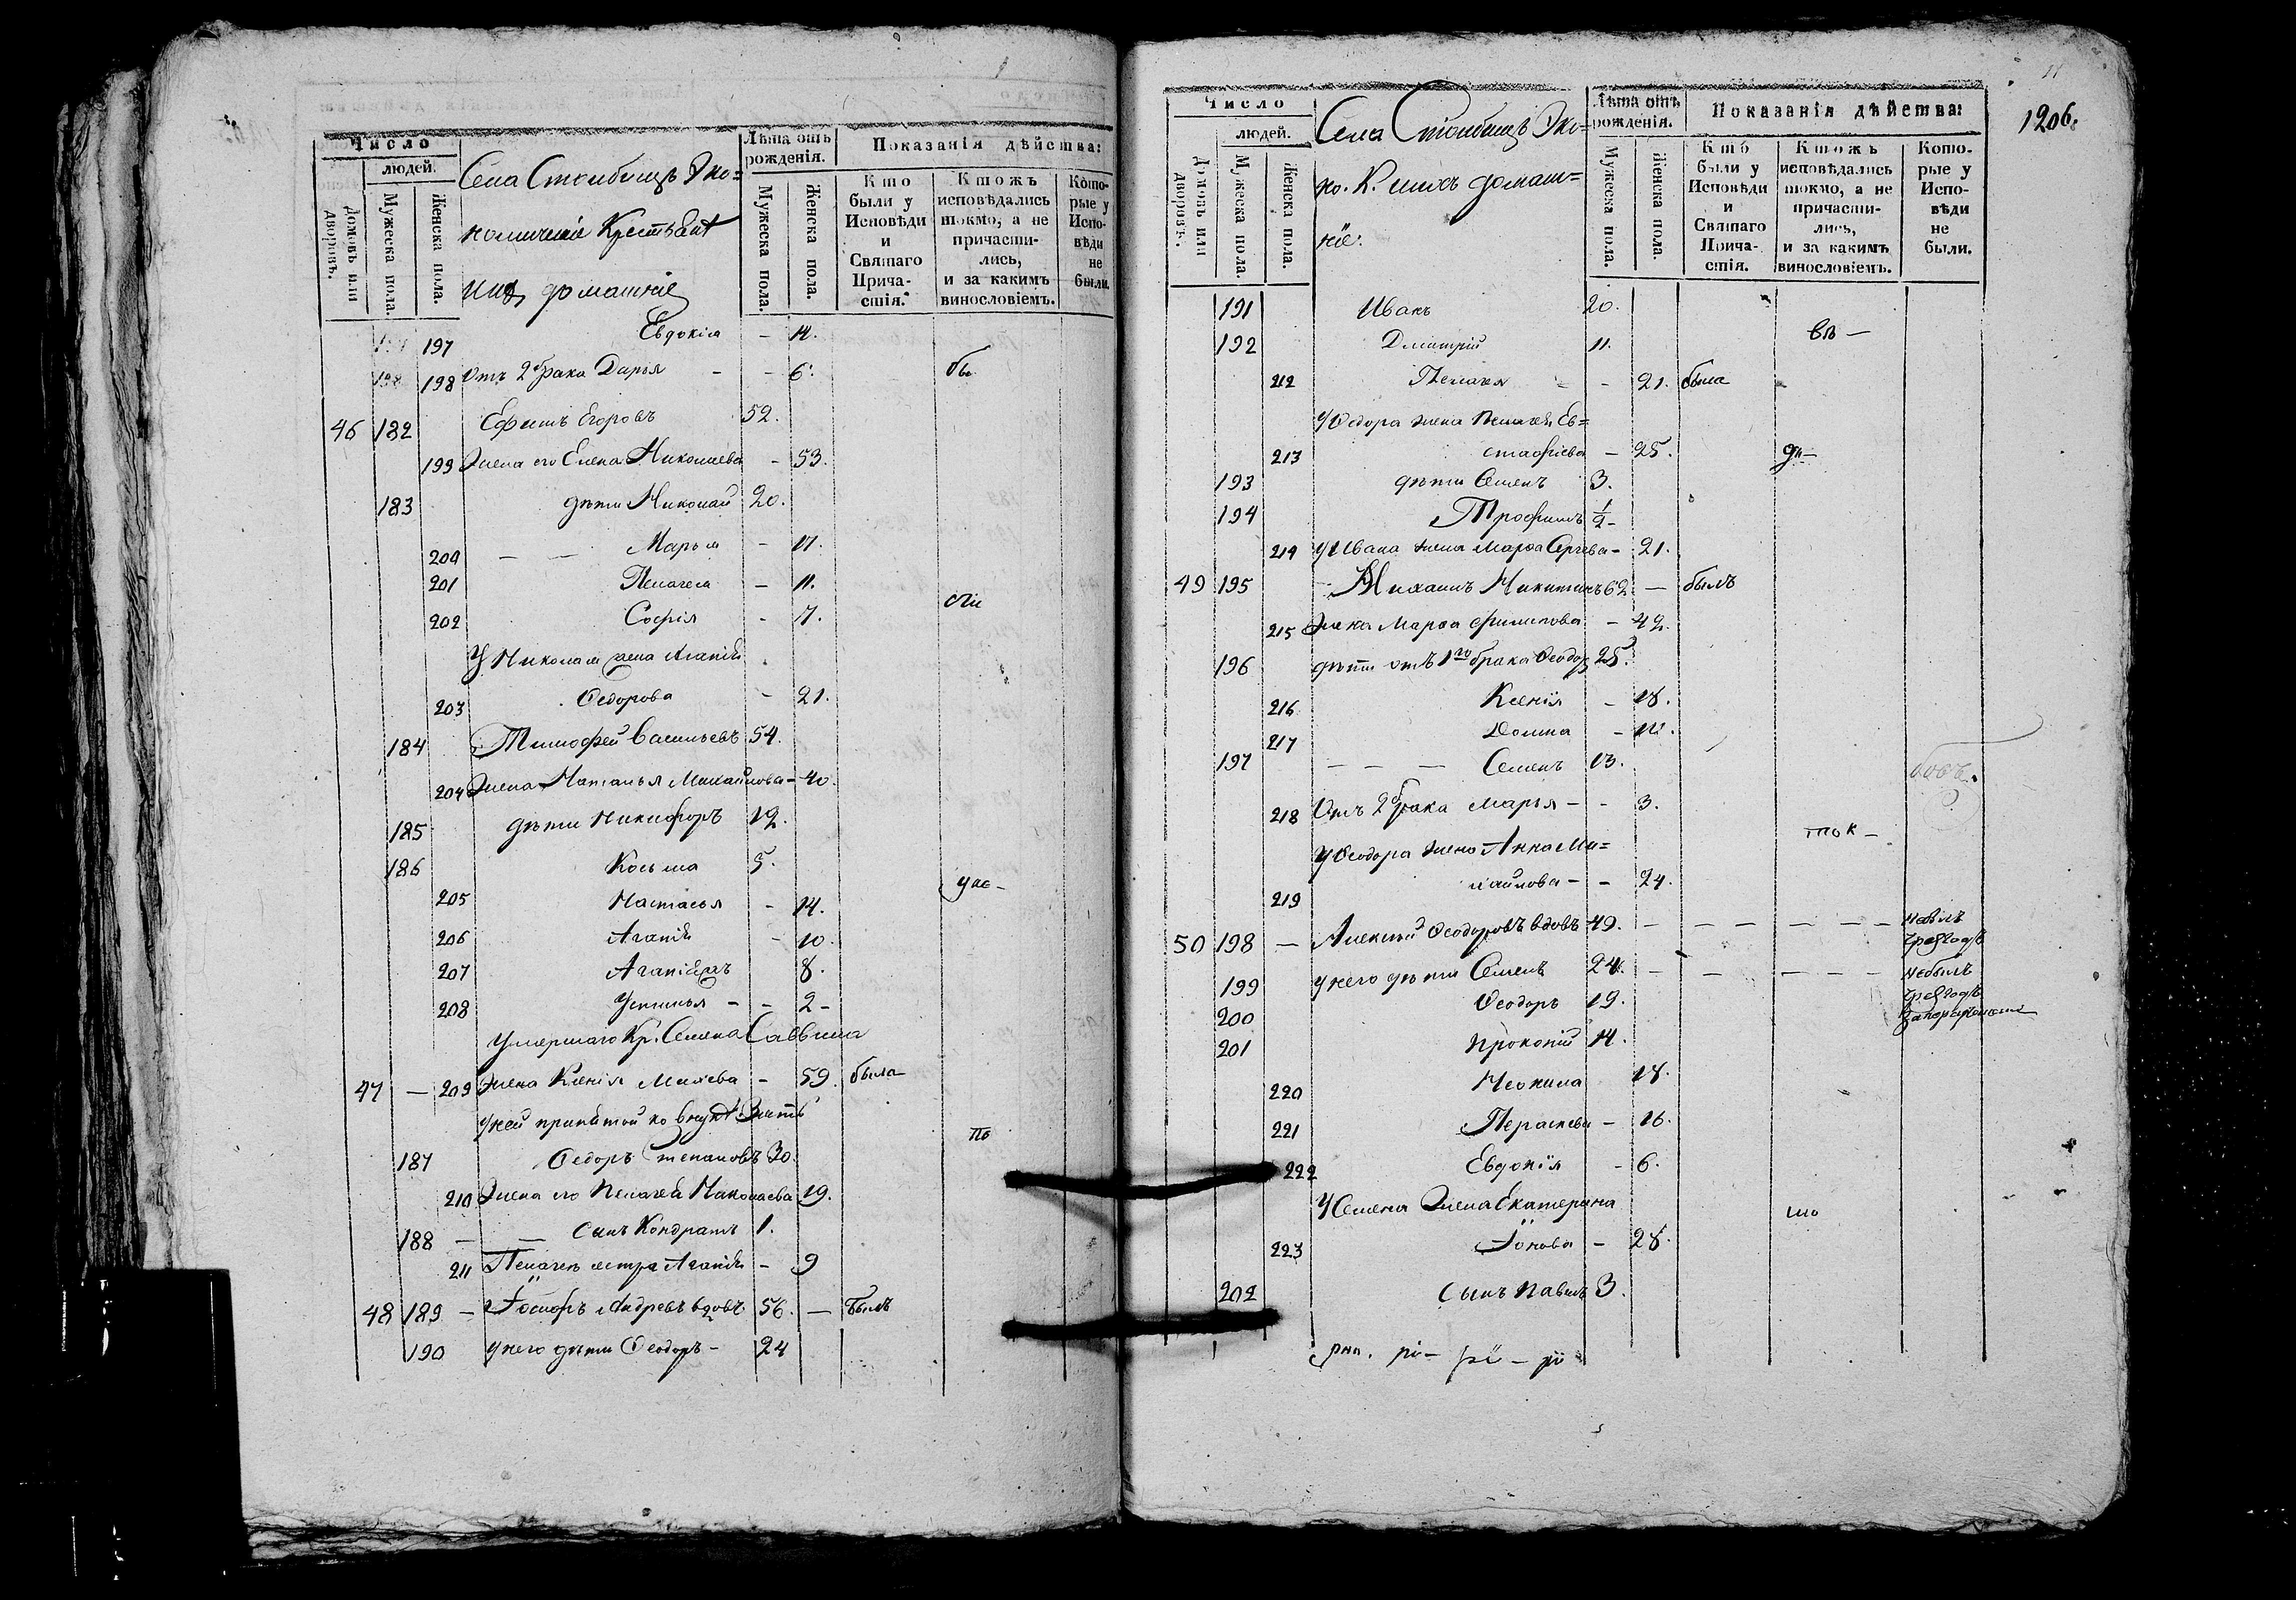 Число
людей.
Домовъ или дворовъ.
Мужеска пола.
Женска пола.
Села Столбищъ Эко=
номическіе Крестьяне
ихъ домашніе
Лѣта отъ рожденія.
Мужеска пола.
Женска пола.
Показанія дѣйства:
Кто были у Исповѣди и Святаго Причастія.
Ктожъ исповѣдались токмо, а не причастились, и за какимъ винословіемъ.
Которые у Исповѣди не были.
197 Евдокія - 14.
198 198 Отъ 2 брака Дарья - - 6. бы
46 182 Ефимъ Егоровъ 52.
199 Жена его Елена Николаева - 53.
183 дѣти Николай 20.
200 — — Марья - 17.
201 Пелагея - 11.
202 Софія - 7.
У Николая жена Агапія
203 Ѳедорова - 21.
184 Тимофей Васильевъ 54.
204 Жена Наталья Михайлова - 40.
185 дѣти Никифоръ 12.
186 Козьма 5.
205 Настасья - 14.
206 Агапія - 10.
207 8.
208 Устинья - - 2 -
Умершаго Кр. Семена Саввина
47 — 209 Жена Ксенія - 59. была
У ней принятой ко внукѣ Зять
187 Ѳедоръ Степановъ 30. по
210 Жена его Пелагея Николаева 19.
188 — — сынъ Кондратъ 1.
211 Пелагеи сестра Агапія - 9
48 189 - Іосифъ Андревъ вдовъ 56. — былъ
190 у него дѣти Ѳеодоръ - 24
Число
людей.
Домовъ или дворовъ.
Мужеска пола.
Женска пола.
Села Столбищъ Эко=
но. К. ихъ домаш=
ніе.
Лѣта отъ рожденія.
Мужеска пола.
Женска пола.
Показанія дѣйства:
Кто были у Исповѣди и Святаго Причастія.
Ктожъ исповѣдались токмо, а не причастились, и за какимъ винословіемъ.
Которые у Исповѣди не были.
1206.
191 Иванъ 20.
192 Дмитрій 11.
212 Пелагея - - 21. была
У Ѳедора жена Пелагея Ев=
213 стафіева - 25.
193 дѣти Семенъ 3.
194 Трофимъ 1/2 -
214 У Ивана жена Марѳа Сергева - 21.
49 195 - Михаилъ Никитинъ 62. — былъ
215 Жена Марѳа Филипова - 42.
196 дѣти отъ 1го брака Ѳеодоръ 25.
216 Ксенія - 18.
217 Домна -
197 — — — Семенъ 13.
218 Отъ 2 брака Марья - - 3.
У Ѳеодора жена Анна Ми= ток -
219 хайлова - - 24.
50 198 — Алексей Ѳеодоровъ вдовъ 49. — — — — — небылъ
199 у него дѣти Семенъ 24. — — — — — небылъ
200 Ѳеодоръ 19.
201 Прокопій 14.
220 Неонила 18.
221 Пераскева - 16.
222 Евдокія - 6.
У Семена Жена Екатерина
223 Іонова - 28.
202 сынъ Павелъ 3.